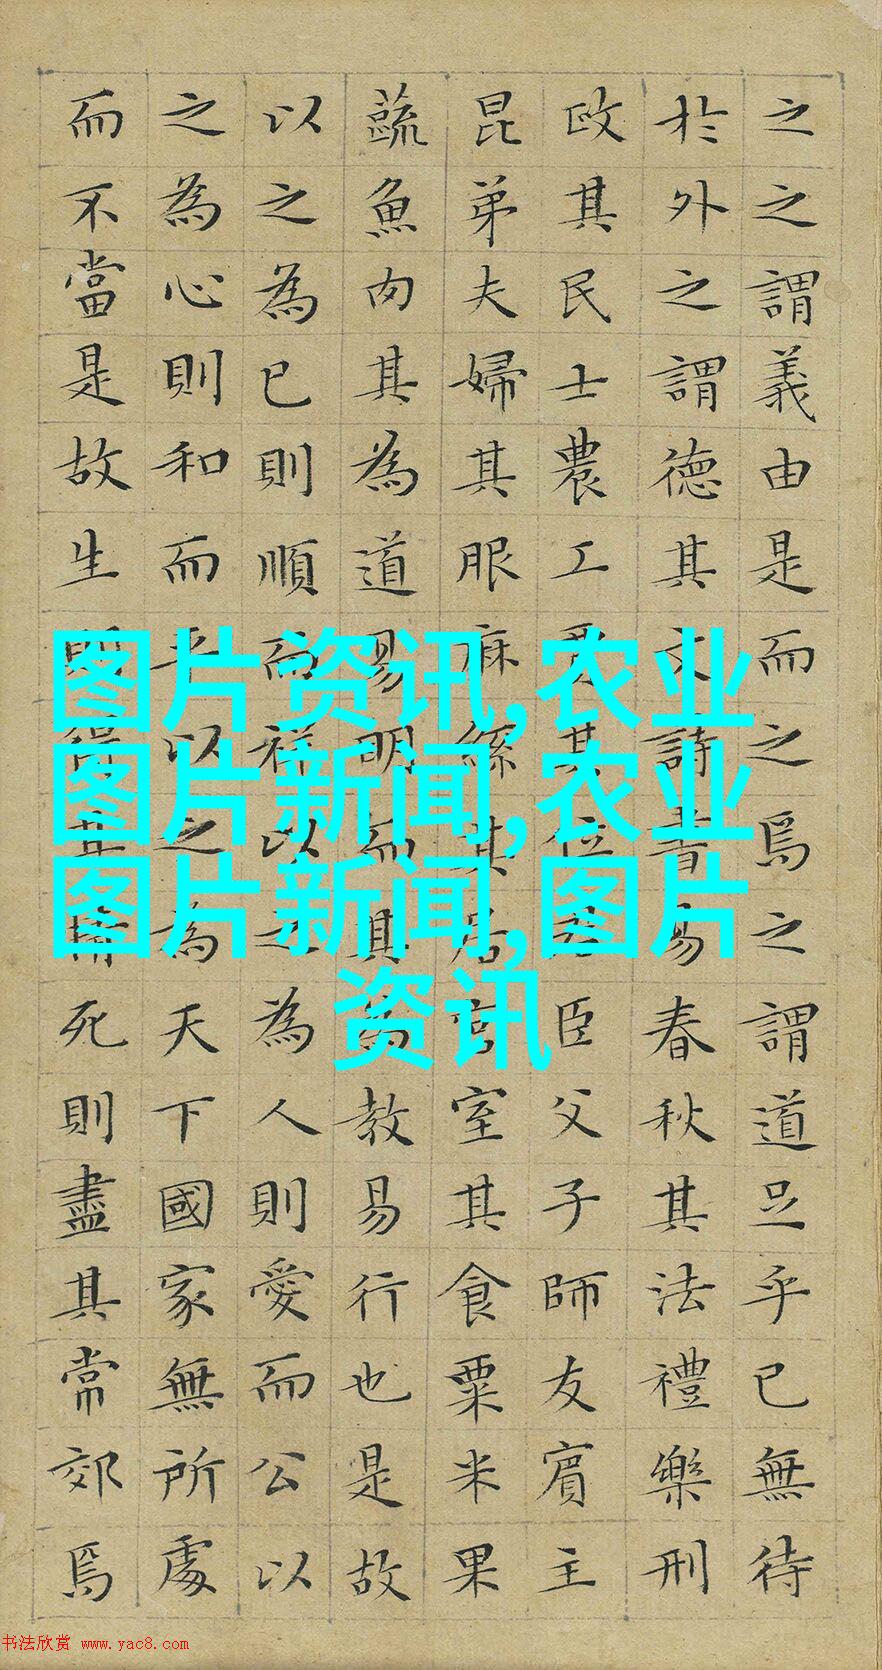 之之謂義由是而之焉之謂道足乎已無待
於外之謂德其文詩書易春秋其法禮樂刑
政其民士農工賈其位君臣父子師友賓主
昆弟夫婦其服麻絲其居宮室其食粟米果
蔬魚肉其為道易明而其為教易行也是故
以之為已則順而祥以之為人則愛而公以
之為心則和而平以之為天下國家無所處
而不當是故生則得其情死則盡其常郊焉
图片资讯,农业
图片新闻,农业
图片新闻,图片
资讯
书法欣赏 www.yac8.com